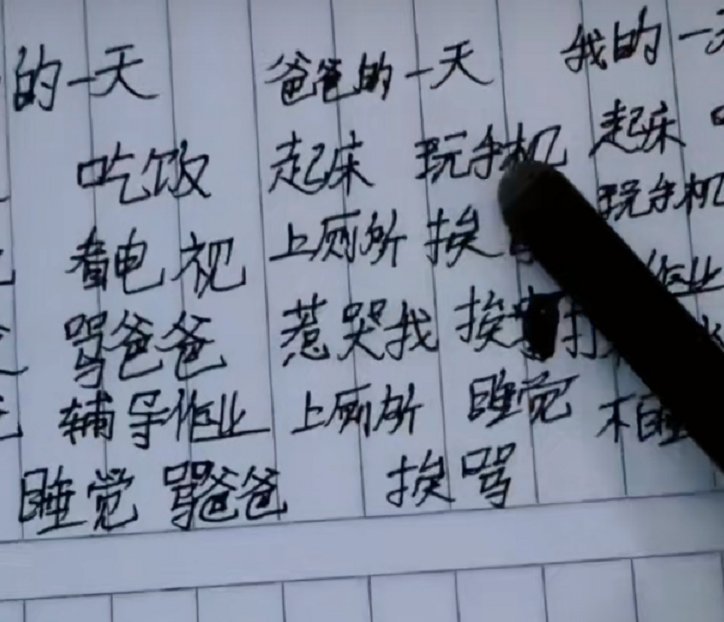 的一天 爸爸的一天 我的一
吃饭 起床 玩手机 起床
看电视 上厕所 挨 玩手机
骂爸爸 惹哭我 挨 打 作业
辅导作业 上厕所 睡觉 不睡
睡觉 骂爸爸 挨骂